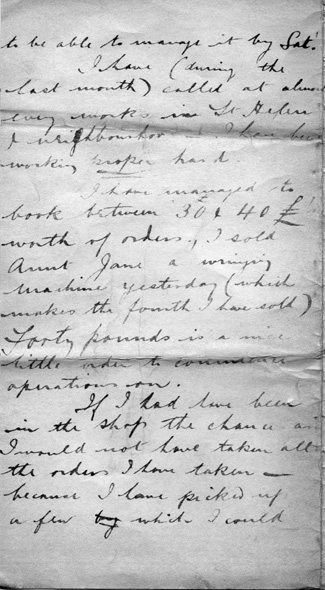 to be able to manage it by Sat!
I have (during the
last month) called at almost
every works in St Helens
& neighbourhood — I have been
working proper hard.
I have managed to
book between 30 & 40 £
worth of orders, I sold
Aunt Jane a wringing
machine yesterday (which
makes the fourth I have sold)
Forty pounds is a nice
little order to commence
operations on.
If I had have been
in the shop the chance as
I would not have taken all
the orders I have taken —
because I have picked up
a few by which I could